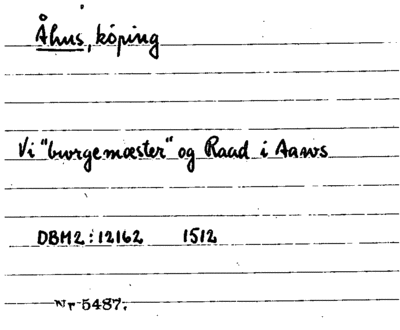 Åhus, köping
Vi "burgemæster" og Raad i Aaws
DBM2:12162 1512
Nr 5487.